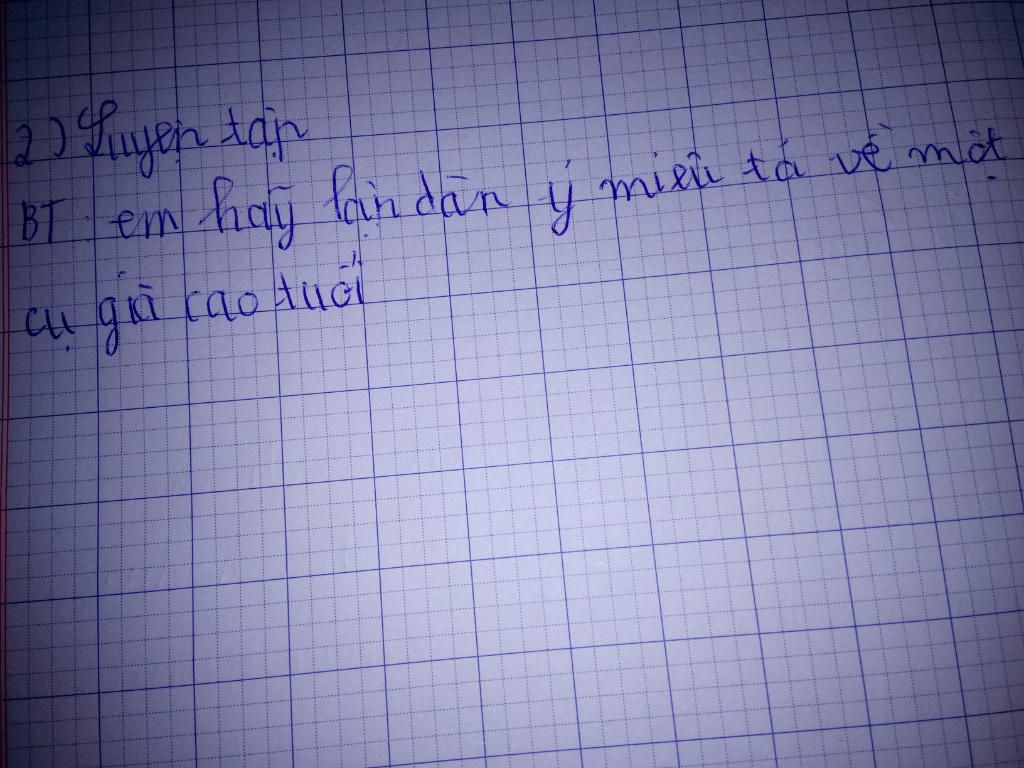 2) Luyện tập
BT: em hãy lập dàn ý miêu tả về một
cụ già cao tuổi